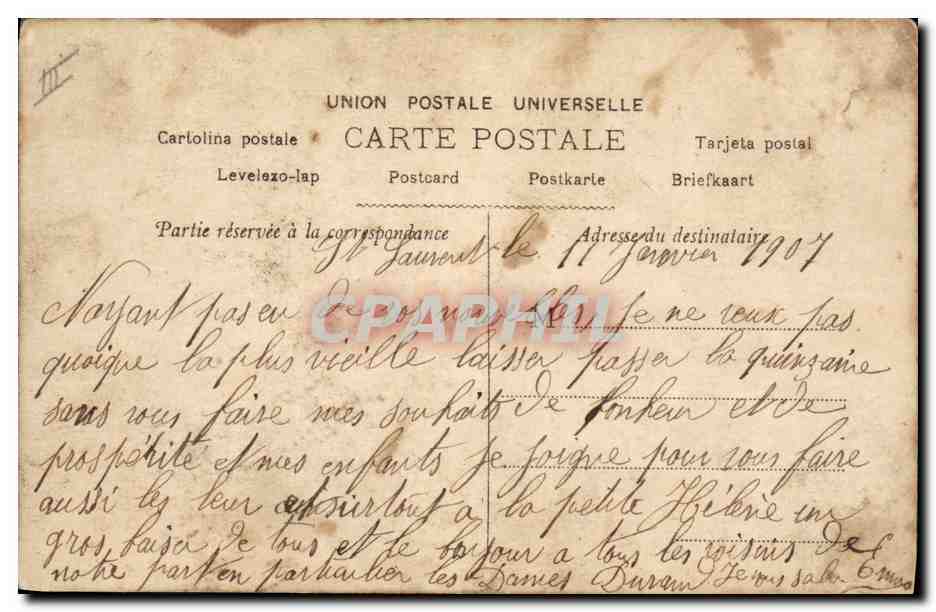 III
UNION POSTALE UNIVERSELLE
Cartolina postale CARTE POSTALE Tarjeta postal
Levelezo-lap Postcard Postkarte Briefkaart
Partie réservée à la correspondance Adresse du destinataire
St Laurent le 11 Janvier 1907
CPAPHIL
M
N'ayant pas eu de vos nouvelles, je ne veux pas
quoique la plus vieille laisser passer la quinzaine
sans vous faire mes souhaits de bonheur et de
prospérité et mes enfants se joigne pour vous faire
aussi les leur et surtout a la petite Hélène un
gros baiser de tous et le bonjour a tous les voisins de
notre part en particulier les Dames Durand Je vous salue